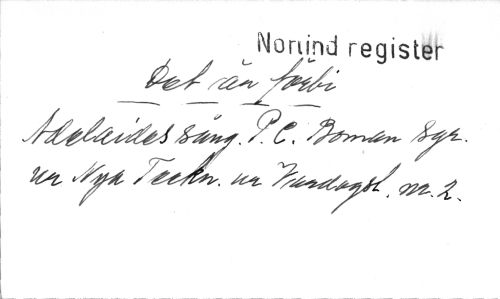 Norlind register
Det är förbi
Adelaides sång. P. C. Boman
ur Nya Teckn. ur Hvardagsl. nr. 2.